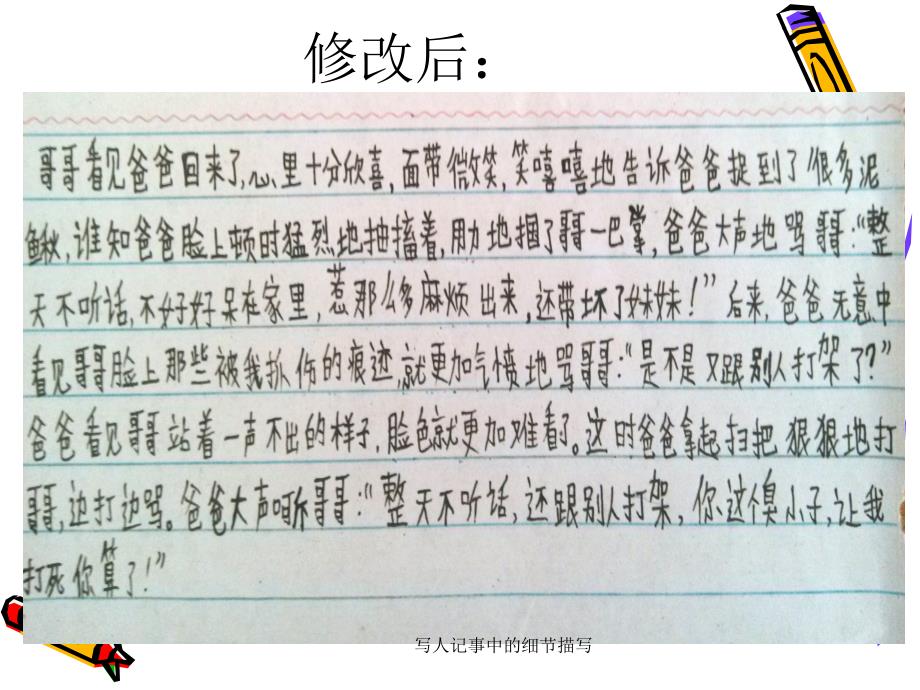 修改后：
哥哥看见爸爸回来了，心里十分欣喜，面带微笑，笑嘻嘻地告诉爸爸捉到了很多泥
鳅，谁知爸爸脸上顿时猛烈地抽搐着，用力地掴了哥一巴掌，爸爸大声地骂哥：“整
天不听话，不好好呆在家里，惹那么多麻烦出来，还带坏了妹妹！”后来，爸爸无意中
看见哥哥脸上那些被我抓伤的痕迹，就更加气愤地骂哥哥：“是不是又跟别人打架了？”
爸爸看见哥站着一声不出的样子，脸色就更加难看了。这时爸爸拿起扫把狠狠地打
哥，边打边骂。爸爸大声呵斥哥哥：“整天不听话，还跟别人打架，你这个臭小子，让我
打死你算了！”
写人记事中的细节描写